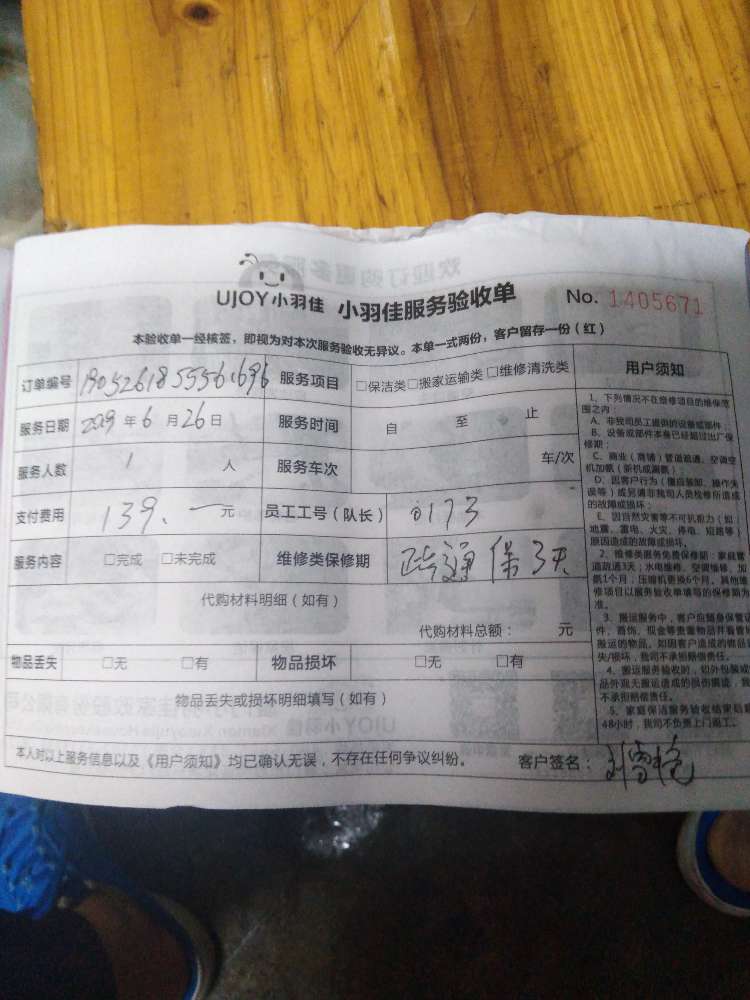 UJOY小羽佳 小羽佳服务验收单 No. 1405671
本验收单一经核签，即视为对本次服务验收无异议。本单一式两份，客户留存一份（红）
订单编号 服务项目 □保洁类□搬家运输类□维修清洗类
服务日期 2019年6月26日 服务时间 自 至 止
服务人数 1 人 服务车次 车/次
支付费用 139.一元 员工工号(队长) 0173
服务内容 □完成 □未完成 维修类保修期 疏通保3天
代购材料明细（如有）
代购材料总额： 元
物品丢失 □无 □有 物品损坏 □无 □有
物品丢失或损坏明细填写（如有）
本人对以上服务信息以及《用户须知》均已确认无误，不存在任何争议纠纷。 客户签名：
用户须知
1、下列情况不在维修项目的维保范
围之内：
A、非我司员工提供的设备或部件
B、设备或部件本身已经超过出厂保
修期；
C、商业（商铺）管道疏通、空调空
机加氨（新机或漏氨）；
误等）或另请非我司人员检修所造成
的故障或损坏；
E、因自然灾害等不可抗彩力（如
地震、雷电、火灾、停电、短路等）
原因造成的故障或损坏。
2、维修类服务免费保修期：家庭管
道疏通3天；水电维修、空调维修、加
氨1个月；压缩机更换6个月。其他维
修项目以服务验收单填写的保修期为
准。
3、搬运服务中，客户应随身保管证
件、首饰、现金等贵重物品并看管
搬运的物品。如因客户造成的物品丢
失/损坏，我司不承担赔偿责任。
4、搬运服务验收时，如外包装或
品外观无搬运造成的损伤痕迹，我
不承担赔偿责任。
5、家庭保洁服务验收结束后超
48小时，我司不负责上门返工。